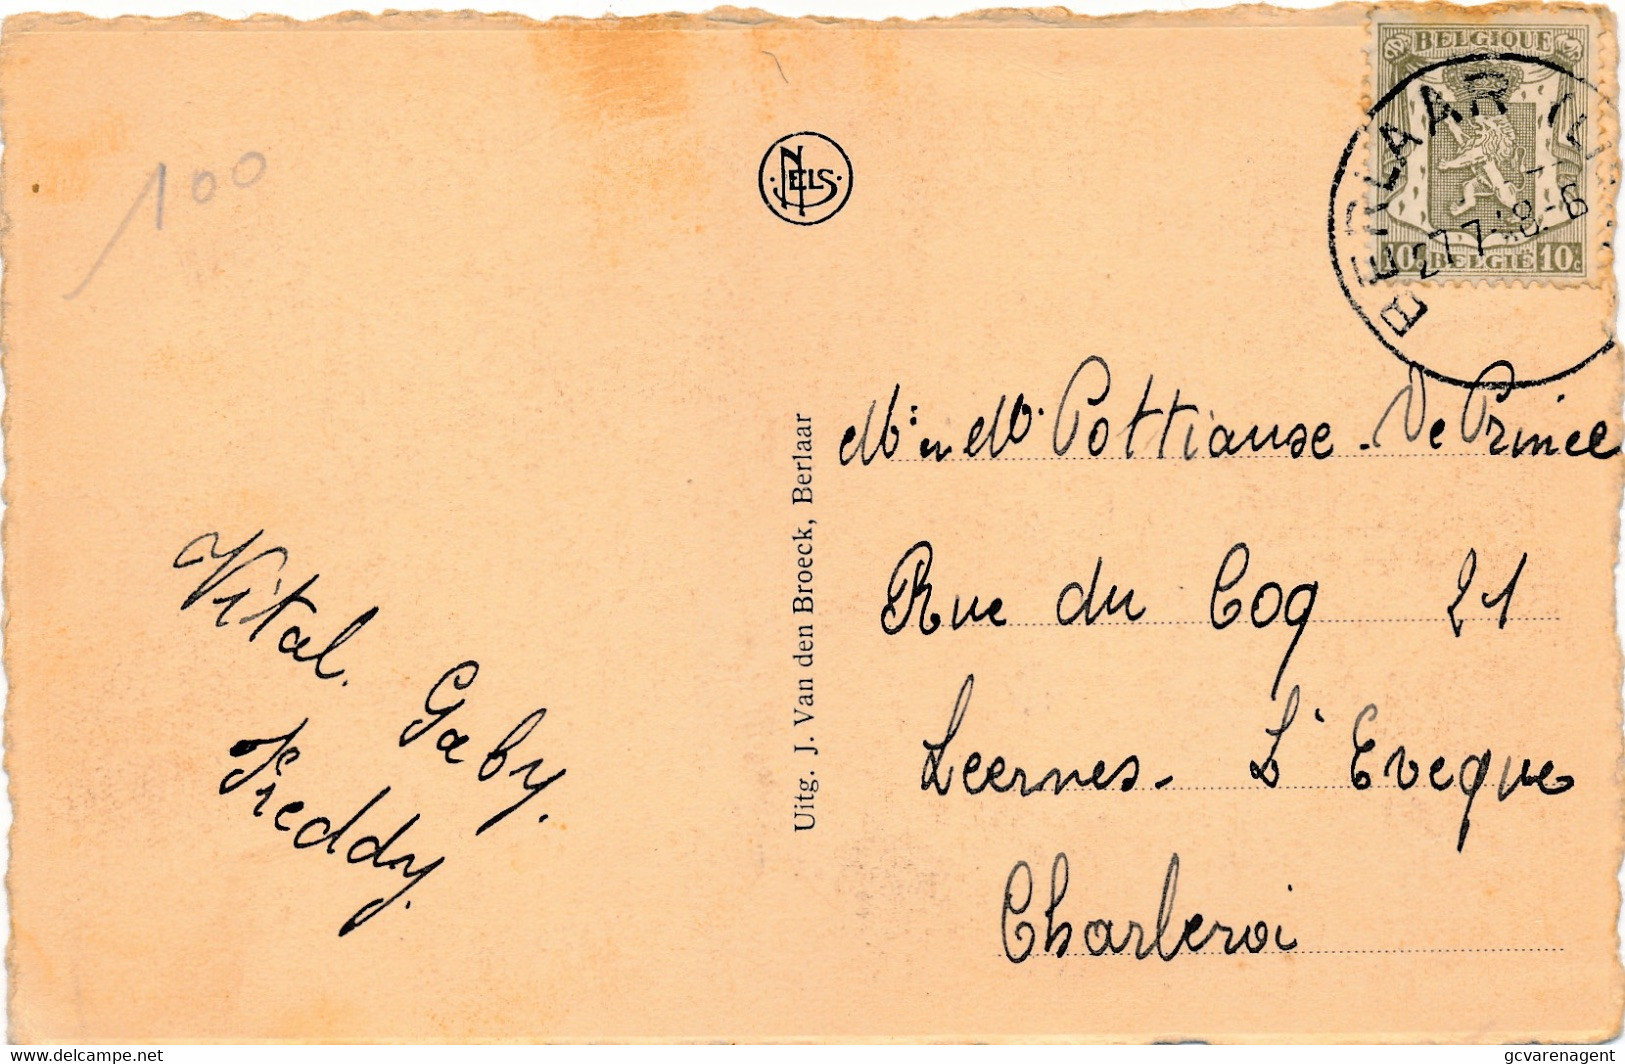 100
NELS
BELGIQUE
BERLAAR
10c BELGIË 10c
Uitg. J. Van den Broeck, Berlaar
Mr. en Me. Pottiause - De Prince
Rue du Coq 21
Leernes - L'Eveque
Charleroi
Vital. Gaby.
Freddy.
delcampe.net
gcvarenagent